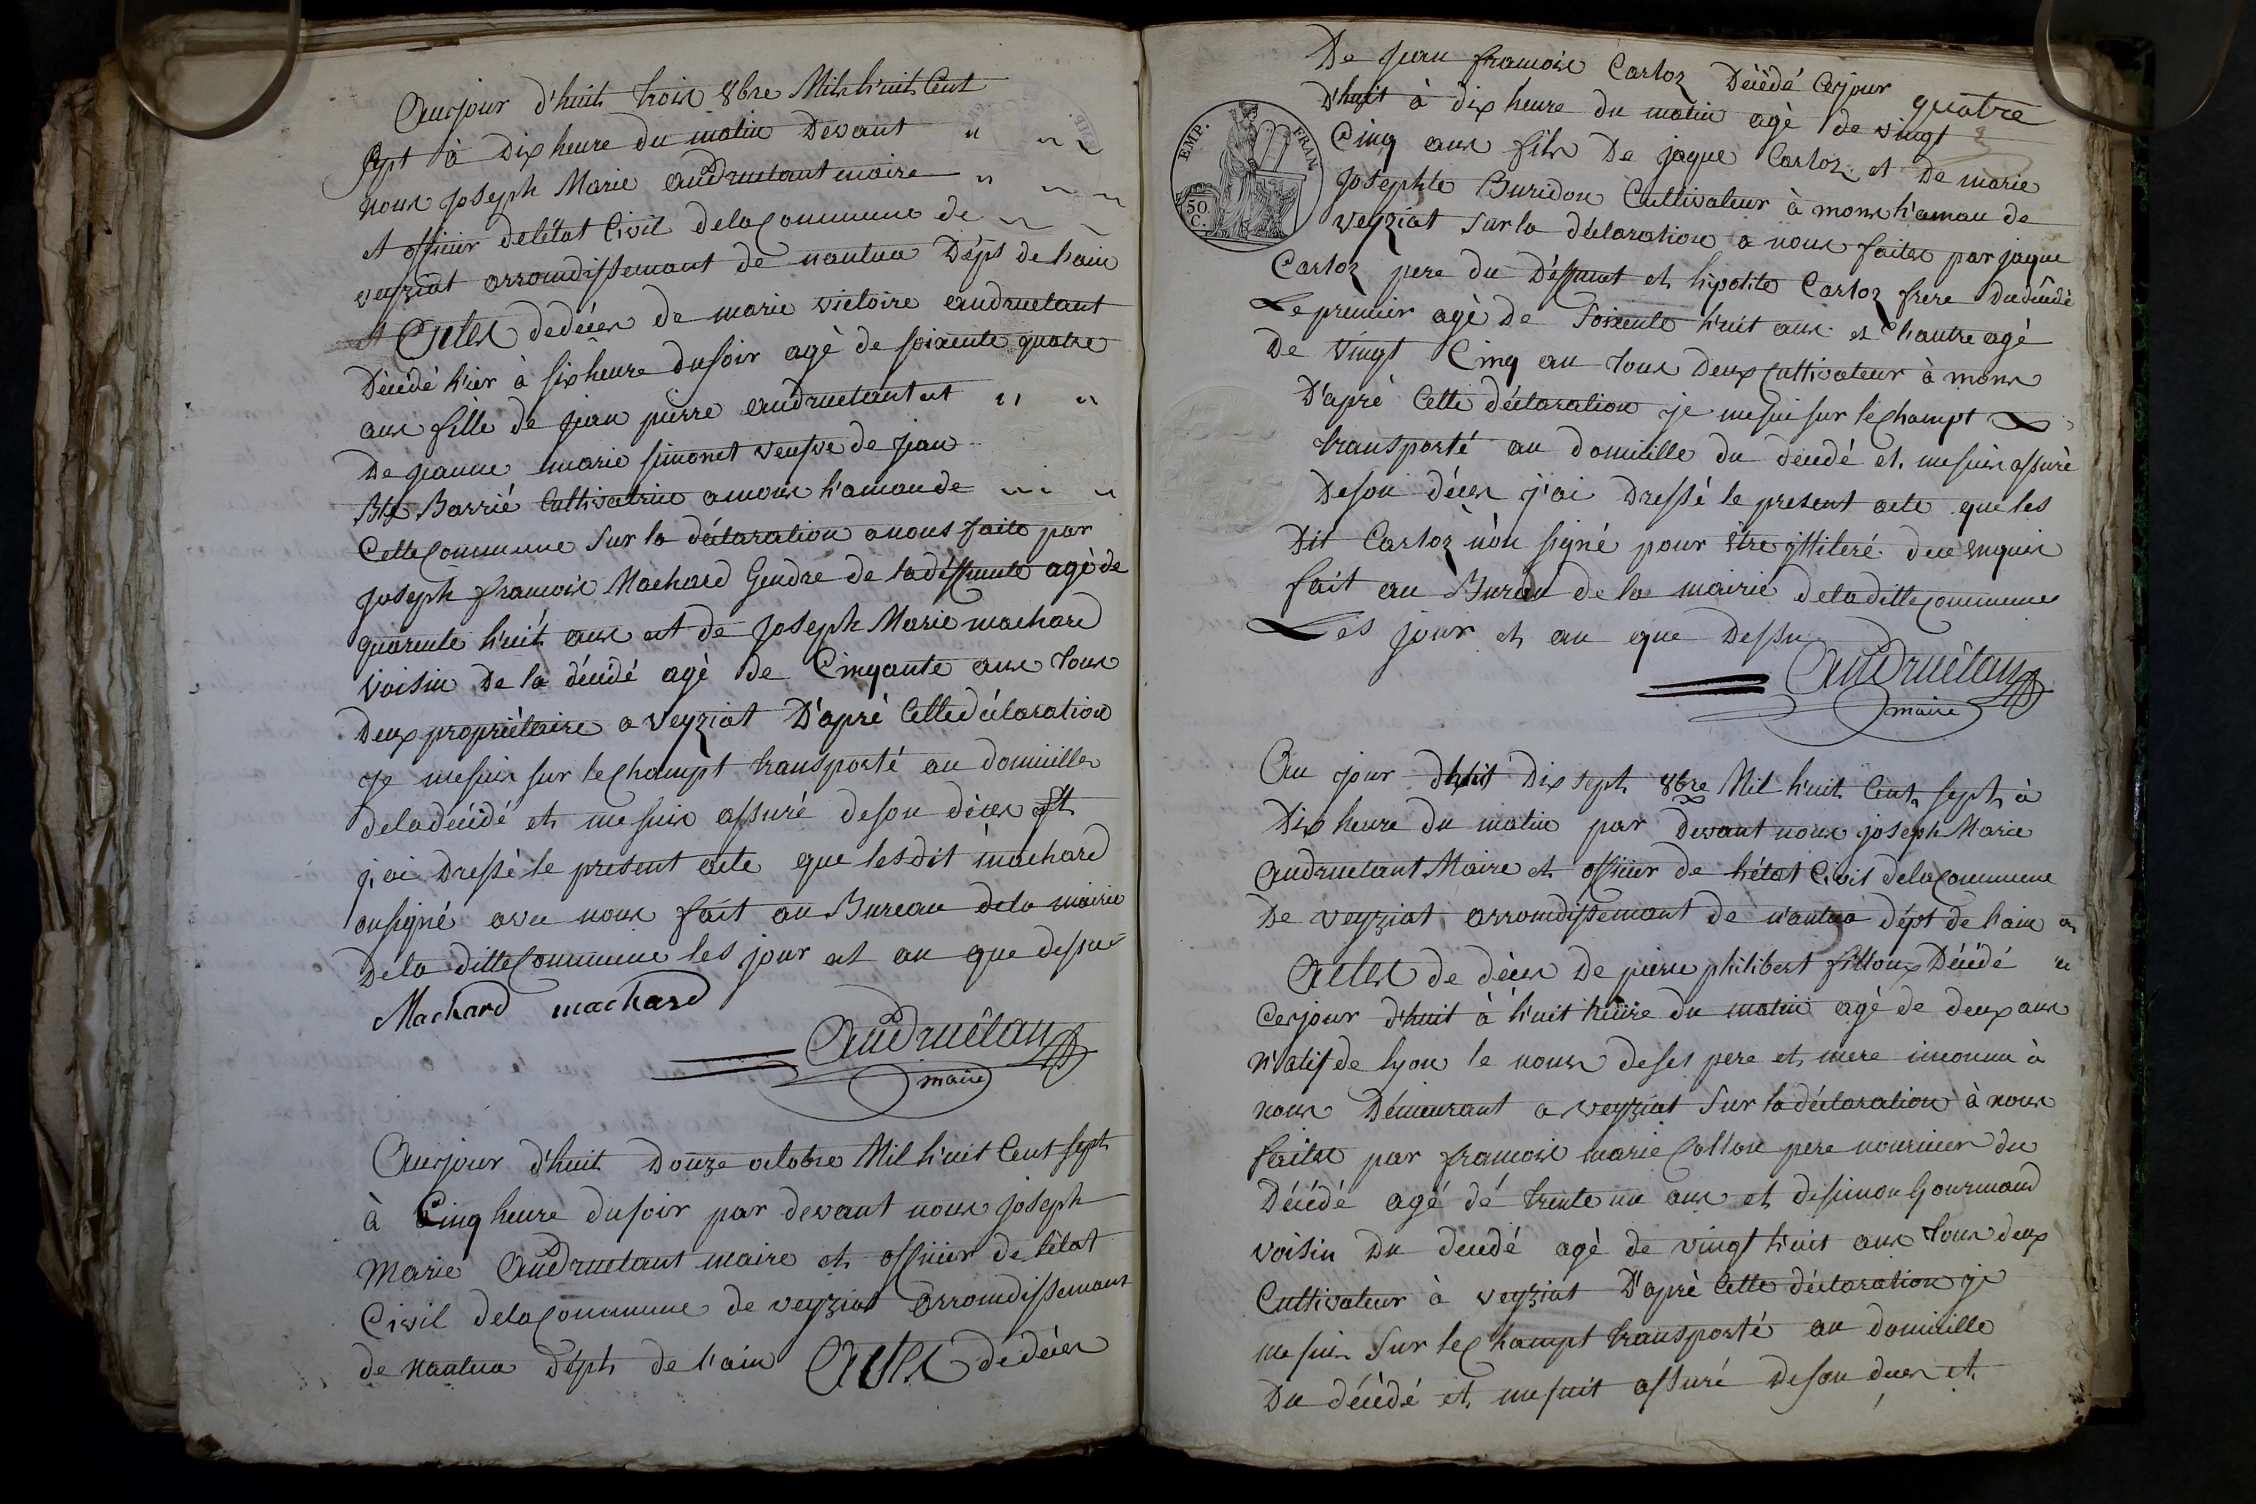 Aurjour d'huit trois 8bre Mil huit Cent
sept à Dix heure du matin Devant
nous Joseph Marie andruetant maire
et officier deletat Civil delaCommune de
veyziat arromdissemant de nantua Dépt de l'ain
Actes dedéces de marie victoire andruetant
Décédé hier à six heure dusoir agè de soixente quatre
ans fille de jean pierre andruetant et
De jeanne marie simonet veufve de jean
Bte Barrié Cultivatrice a mons hamau de
CetteCommune Sur la déclaration a nous faite par
Joseph francois Machard Gendre de la déffunte agè de
quarente huit ans et de Joseph Marie machard
voisin De la décédé agè de Cinqante ans tous
Deux propriétaire a veyziat D'apré Cette déclaration
je mesuis sur leChampt transporté au domicille
deladécédé et mesuis assuré deson déces et
j'ai Dressé le present acte que lesdit machard
onsigné avec nous fait au Bureau dela mairie
Dela ditteCommune les jour et an que dessus
Machard machard
Andruétan
maire
Aurjour d'huit Douze octobre Mil huit Cent sept
à Cinq heure dusoir par devant nous joseph
Marie Andruetant maire et officier de létat
Civil delaCommune de veyziat Arromdissemant
de nantua Dépt de l'ain Actes de déces
De jean francois Carloz Décédé Cejour
quatre
D'huit à dix heure du matin agè de vingt
Cinq ans fils De jaque Carloz et De marie
Josephte Buridon Cultivateur à mons hamau de
veyziat Sur la déclaration a nous faites par jaque
Carloz pere du Déffunt et hipolite Carloz frere dudécédé
Le prémier agè De Soixente huit ans et l'autre agè
De vingt Cinq an tous Deux Cultivateur à mons
D'apré Cette déclaration je mesui sur leChampt
transporté au domicille du décédé et mesuis assuré
Deson déces j'ai Dressé le present acte que les
Dit Carloz n'on signé pour être illiteré de ce enquis
fait au Bureau de la mairie deladitteCommune
Les jour et an que Dessu
Andruétan
maire
EMP. FRAN.
50 C.
Au jour dhuit Dix sept 8bre Mil huit Cent sept à
Dix heure du matin par Devant nous joseph Marie
Andruetant Maire et officier de létat Civil delaCommune
De veyziat arromdissemant de nantua dépt de l'ain
Actes de déces De pierre philibert filloux Décédé
Cejour d'huit à huit heure du matin agè de deux ans
natif de lyon le nons deses pere et mere inconnu à
nous Démeurant a veyziat Sur la déclaration à nous
faites par francois marie Collon pere nouricier du
Décédé agé dé trente un ans et desimon Gourmand
voisin Du décédé agè de vingt huit ans tous deux
Cultivateur à veyziat D'apré Cette déclaration je
mesuis Sur leChampt transporté au domicille
Du décédé et mesuit assuré Deson déces et